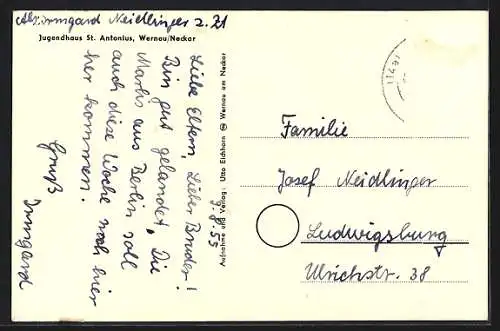 Abs. Irmgard Neidlinger z. Zt
Jugendhaus St. Antonius, Wernau/Neckar
9.8.55
Liebe Eltern, Lieber Bruder!
Bin gut gelandet. Die
Marlis aus Berlin soll
auch diese Woche noch hier
her kommen.
Gruß
Irmgard
Aufnahme und Verlag: Utto Eichhorn Wernau am Neckar
Familie
Josef Neidlinger
Ludwigsburg
Ulrichstr. 38